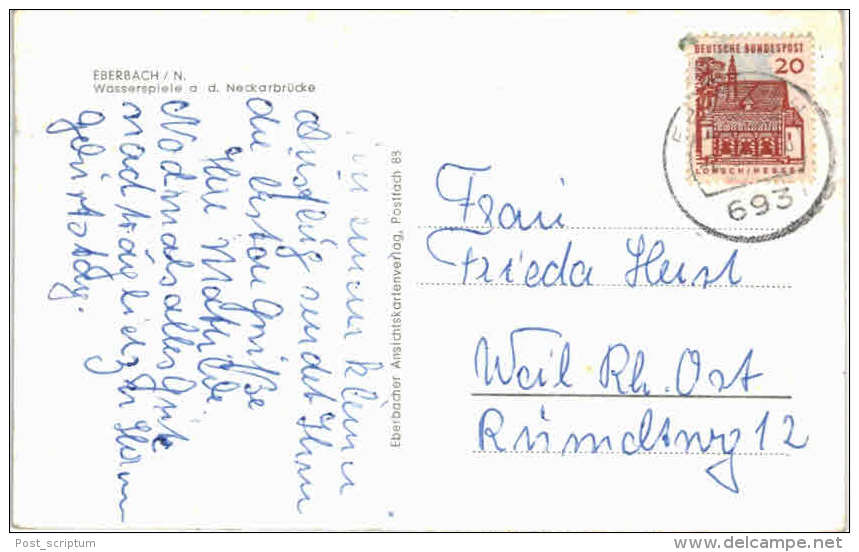 EBERBACH / N.
Wasserspiele a d. Neckarbrücke
einem kleinen
Ausflug sendet Ihnen
die besten Grüße
Ihre Mathilde
Nochmals alles Gute
nachträglich zu Ihrem
Geburtstag.
Eberbacher Ansichtskartenverlag, Postfach 88
DEUTSCHE BUNDESPOST
20
LORSCH/HESSEN
693
Frau
Frieda
Weil Rh. Ost
12
Post_scriptum
www.delcampe.net